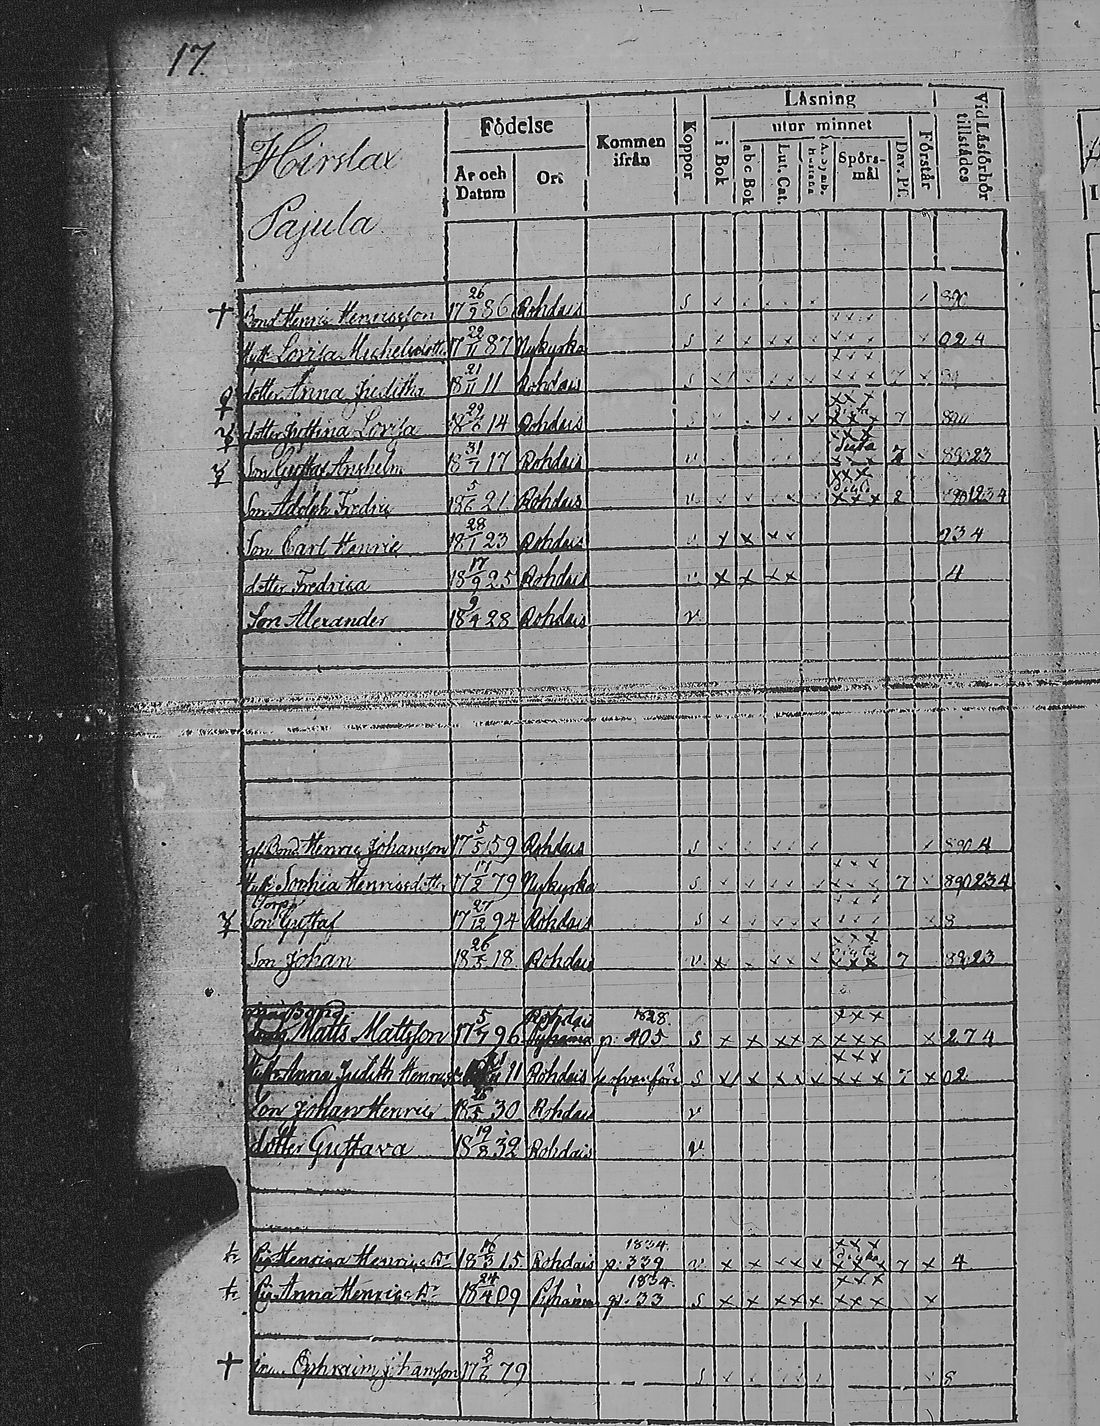 17.
Hirslax
Pajula
Födelse
År och Datum
Ort
Kommen ifrån
Koppor
Läsning
i Bok
utur minnet
abc Bok
Lut. Cat.
Spörsmål
Dav. Ps.
Förstår
Vid Läsförhör tillstädes
† Bond Henric Henricsson 17 26/9 86 Rohdais s 890
Lovisa Michelsdotter 17 29/11 87 Nykyrka s 024
dotter Anna Juditha 18 21/11 11 Rohdais s 7
dotter Lovisa 18 29/6 14 Rohdais s 7 890
Son Gustaf Anshelm 18 31/7 17 Rohdais v 7 89023
Son Adolph Fredric 18 5/6 21 Rohdais v 8 8901234
Son Carl Henric 18 28/1 23 Rohdais v x x x x 034
dotter Fredrica 18 17/9 25 Rohdais v x x x x 4
Son Alexander 18 9/4 28 Rohdais v
Bond. Henric Johansson 17 5/5 59 Rohdais s 8904
Sophia Henricsdotter 17 17/2 79 Nykyrka s 7 890234
Torpp
Son Gustaf 17 27/12 94 Rohdais s 8
Son Johan 18 26/5 18 Rohdais v x 7 89023
måg Bond. Rohdais 1828.
Matts Mattsson 17 5/7 96 p. 405 s x x x x x x x x x 274
Anna Judith Henricsd. 11 Rohdais p ofvanföre s 7 x 02
Son Johan Henric 18 26/5 30 Rohdais v
dotter Gustava 18 19/8 32 Rohdais v
Pig. Henrica Henrics Dr 18 16/3 15 Rohdais 1834. p. 339 v x x x x x x x x 7 x 4
Pig. Anna Henrics Dr 18 24/4 09 1834. p. 33 s x x x x x x x x x
† Ephraim Johansson 17 2/6 79 s 8